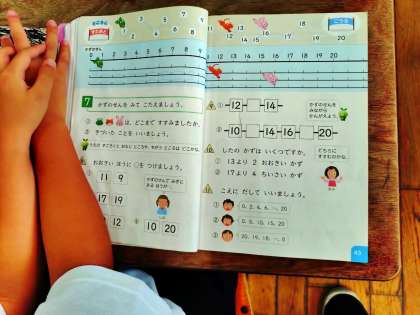 かずのせん
0 1 2 3 4 5 6 7 8 9
10 11 12 13 14 15 16 17 18 19 20
7 かずのせんを みて こたえましょう。
① は、どこまで すすみましたか。
② きづいた ことを いいましょう。
おおきい ほうに ○を つけましょう。
かずのせんで みぎに
ある ほうが
11 9
17 19
10 20
① 12 14
② 10 14 16 20
かずのせんを
みながら
かんがえよう。
したの かずは いくつですか。
① 13より 2 おおきい かず
② 17より 4 ちいさい かず
どちらに
すすむのかな。
こえに だして いいましょう。
① 0、2、4、6、…、20
② 0、5、10、15、20
③ 20、19、18、…、0
93